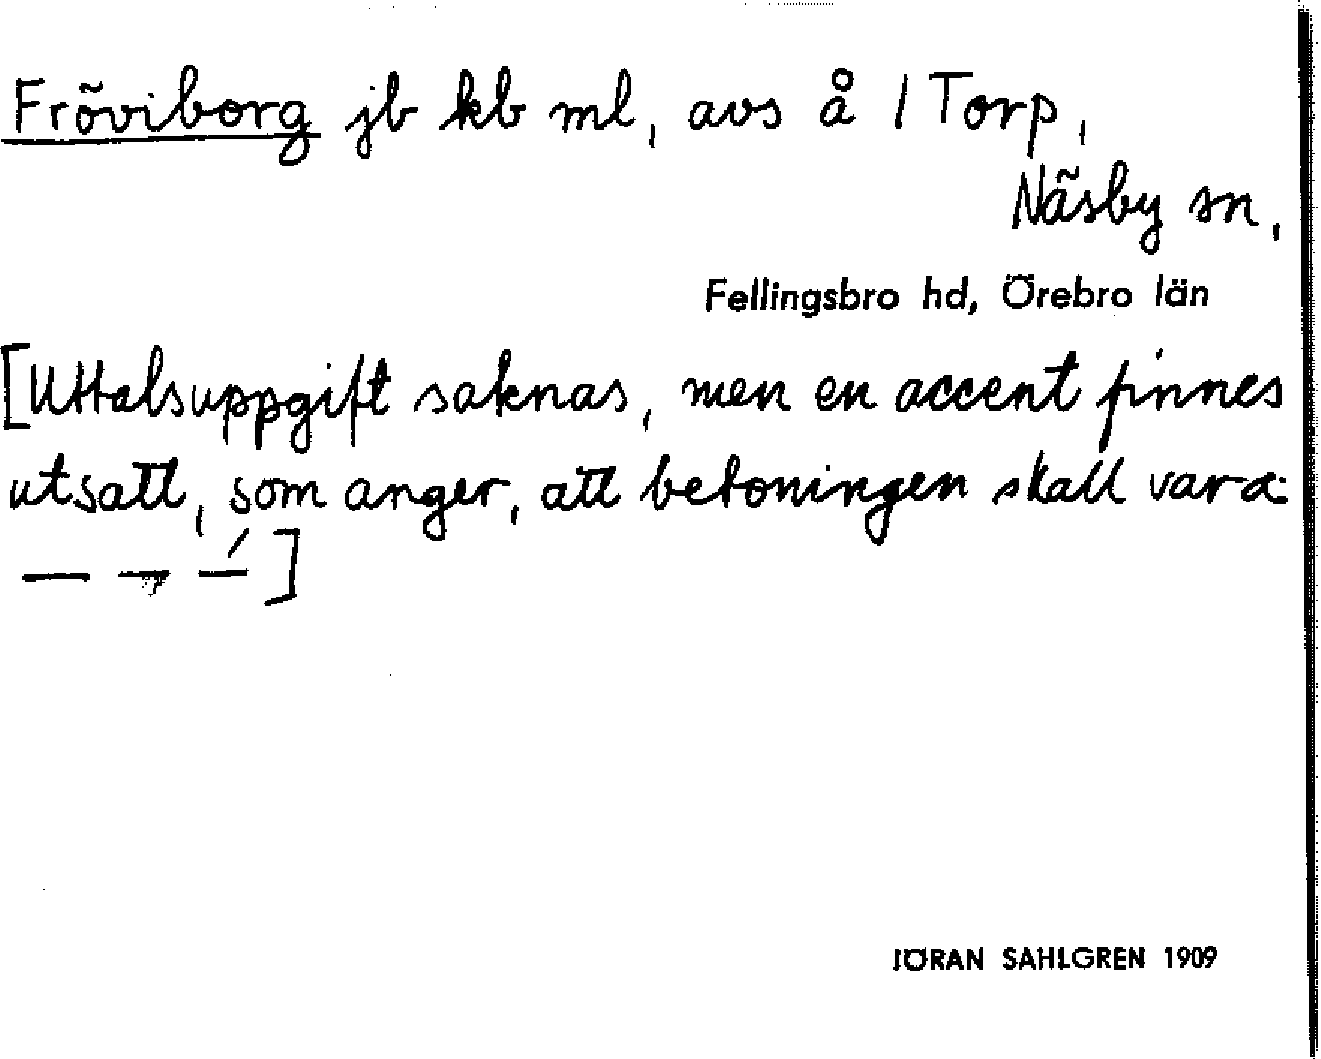 Fröviborg jb kb ml, avs å 1 Torp,
Näsby sn,
Fellingsbro hd, Örebro län
[Uttalsuppgift saknas, men en accent finnes
utsatt, som anger, att betoningen skall vara
— — —́]
JÖRAN SAHLGREN 1909